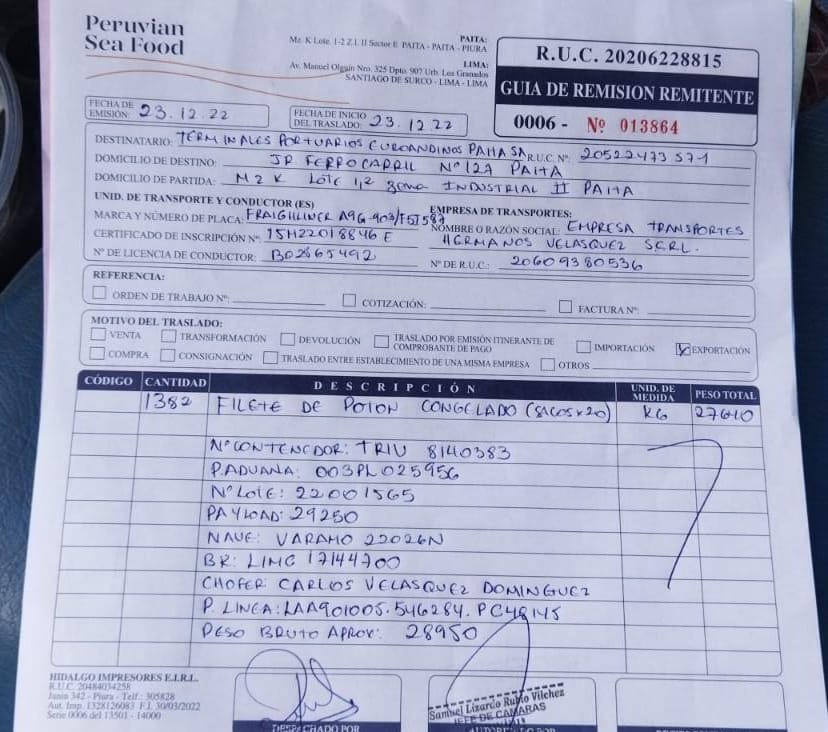 Peruvian
Sea Food
PAITA:
Mz. K Lote. 1-2 Z.I. II Sector E PAITA - PAITA - PIURA
LIMA:
Av. Manuel Olguin Nro. 325 Dpto. 907 Urb. Los Granados
SANTIAGO DE SURCO - LIMA - LIMA
R.U.C. 20206228815
GUIA DE REMISION REMITENTE
0006 - Nº 013864
FECHA DE EMISIÓN: 23.12.22
FECHA DE INICIO DEL TRASLADO: 23.12.22
DESTINATARIO: TERMINALES PORTUARIOS EUROANDINOS PAITA SA R.U.C. Nº: 20522473571
DOMICILIO DE DESTINO: JR FERROCARRIL Nº 127 PAITA
DOMICILIO DE PARTIDA: MZ K LOTE 1,2 zona INDUSTRIAL II PAITA
UNID. DE TRANSPORTE Y CONDUCTOR (ES)
MARCA Y NÚMERO DE PLACA: FRAIGHLINER A9G-903/F5J587
CERTIFICADO DE INSCRIPCIÓN Nº: 15M22018846E
Nº DE LICENCIA DE CONDUCTOR: B02865492
EMPRESA DE TRANSPORTES:
NOMBRE O RAZÓN SOCIAL: EMPRESA TRANSPORTES
HERMANOS VELASQUEZ SCRL.
Nº DE R.U.C.: 20609380536
REFERENCIA:
ORDEN DE TRABAJO Nº: COTIZACIÓN: FACTURA Nº:
MOTIVO DEL TRASLADO:
VENTA TRANSFORMACIÓN DEVOLUCIÓN TRASLADO POR EMISIÓN ITINERANTE DE COMPROBANTE DE PAGO IMPORTACIÓN EXPORTACIÓN
COMPRA CONSIGNACIÓN TRASLADO ENTRE ESTABLECIMIENTO DE UNA MISMA EMPRESA OTROS
CÓDIGO CANTIDAD DESCRIPCIÓN UNID. DE MEDIDA PESO TOTAL
1382 FILETE DE POTON CONGELADO (SACOS x20) KG 27640
Nº CONTENEDOR: TRIU 8140383
P.ADUANA: 003PL025956
Nº LOTE: 22001565
PAYLOAD: 29250
NAVE: VARAMO 22026N
BK: LIMC 17144700
CHOFER CARLOS VELASQUEZ DOMINGUEZ
P. LINEA: LAA901005.546284.PC48145
PESO BRUTO APROX: 28950
HIDALGO IMPRESORES E.I.R.L.
R.U.C. 20484034258
Junin 342 - Piura - Telf.: 305828
Aut. Imp. 1328126083 F.I. 30/03/2022
Serie 0006 del 13501 - 14000
DESPACHADO POR
Samuel Lizardo Rubio Vilchez
JEFE DE CAMARAS